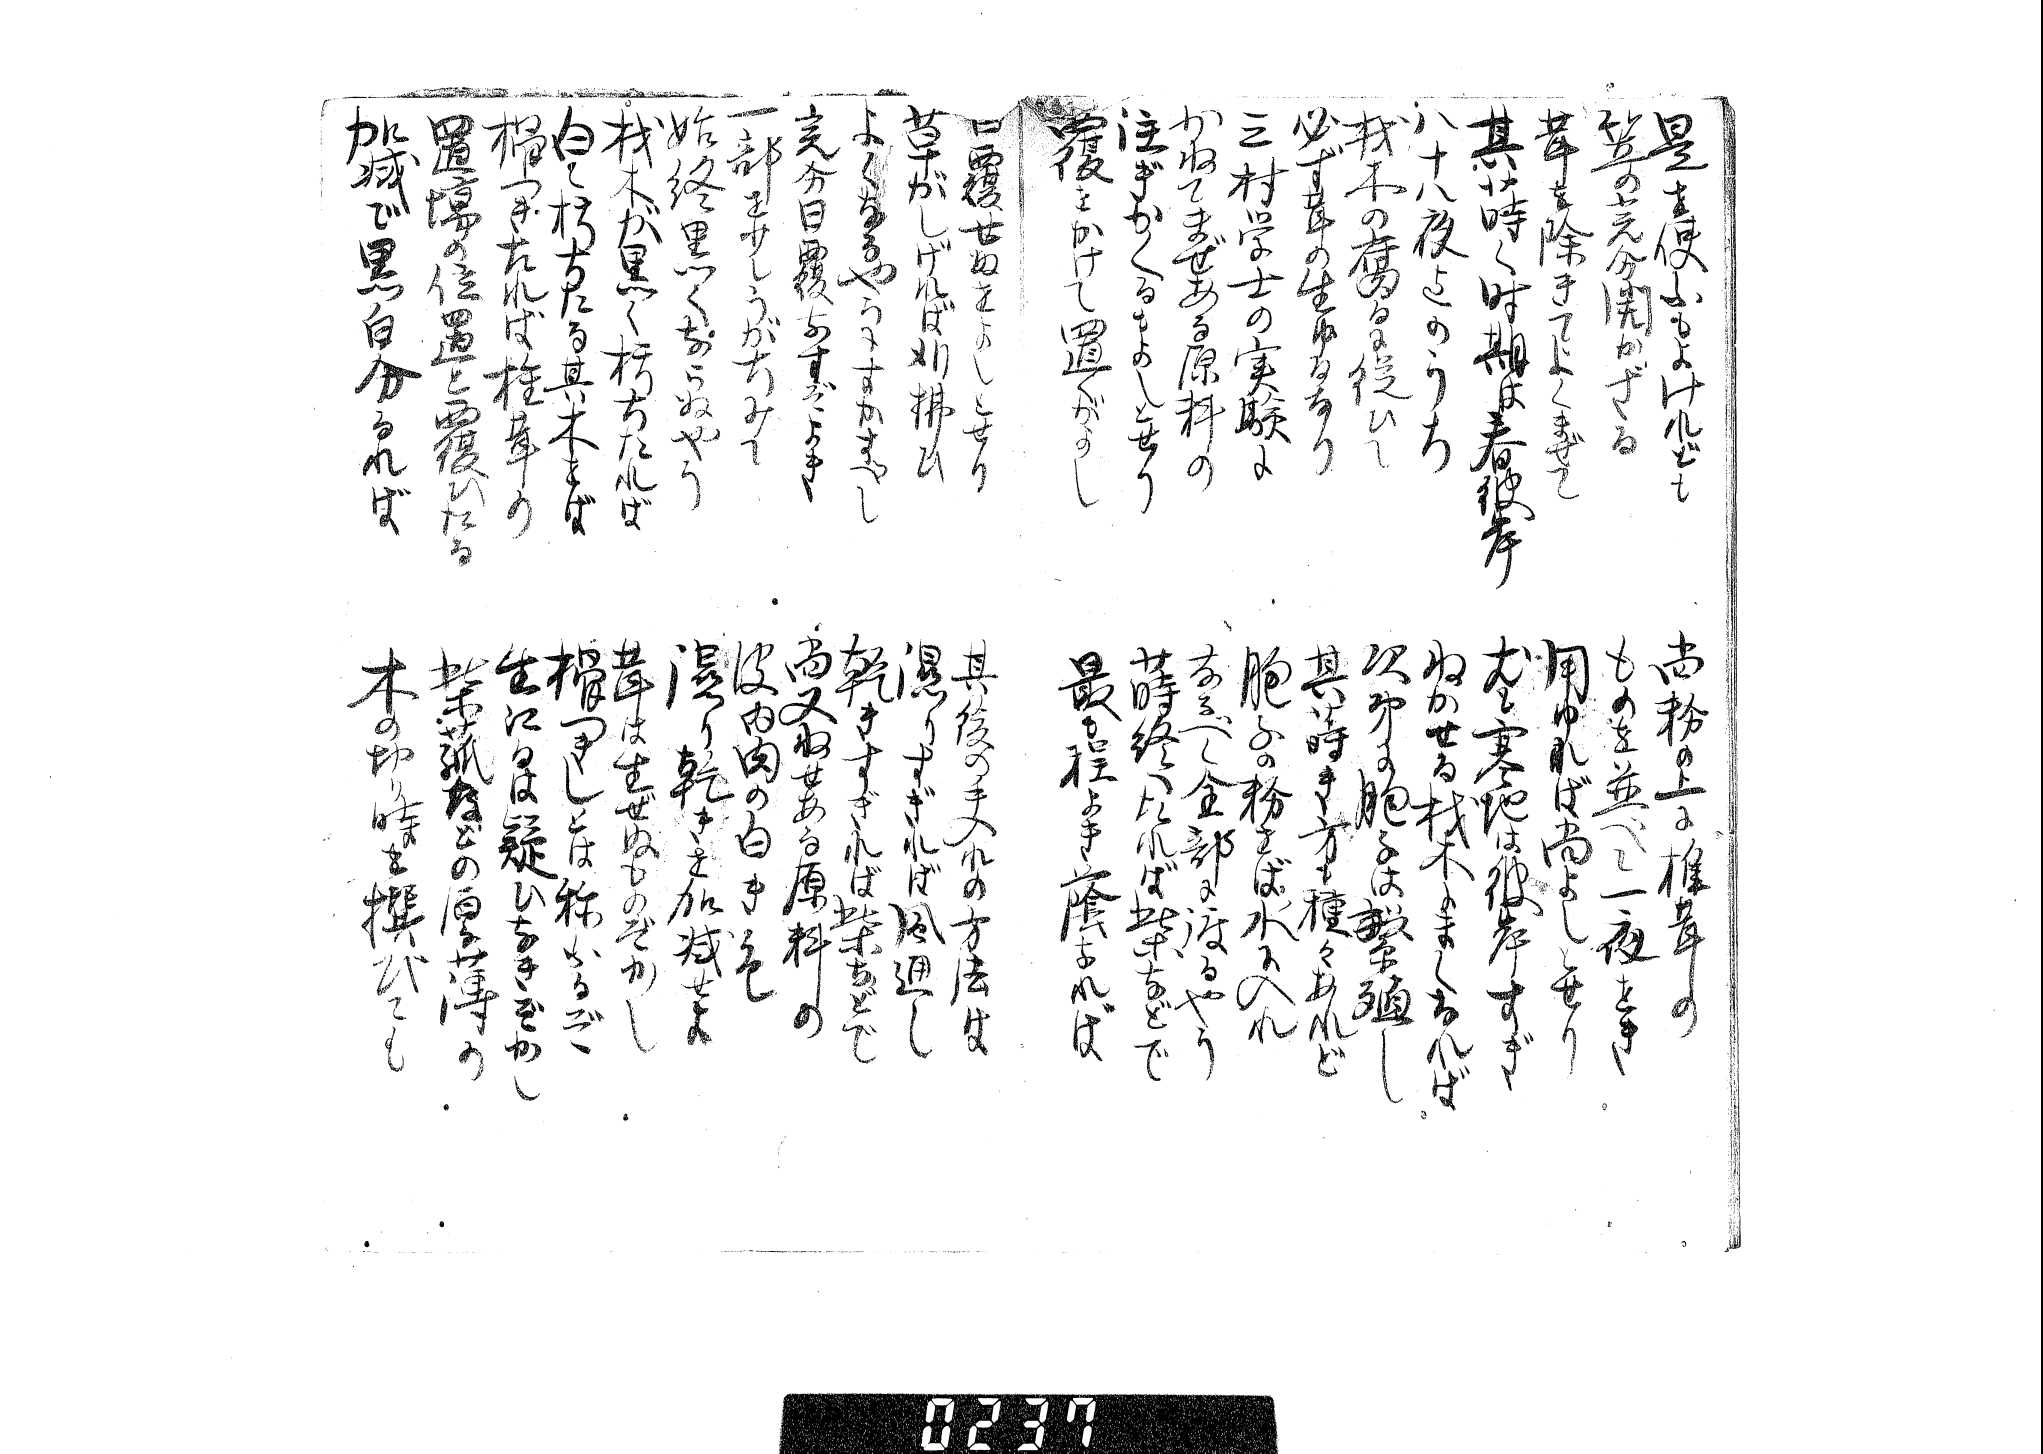 是を使ふもよけれども　尚粉の上に椎茸の
笠の充分開かざる　ものを並べて一夜をき
茸を除きてよくまぜて　用ゆれば尚よしとせり
其蒔く時期は春彼岸　寒地は彼岸すぎ
八十八夜迄のうち　ねかせる材木にまくなれば
材木の腐るに従ひて　次第に胞子は繁殖し
必ず茸の生ゆるなり　其蒔き方も種々あれど
三村学士の実験に　胞子の粉をば水に入れ
かねてまぜある原料の　なるべく全部に渡るやう
注ぎかくるもよしとせり　蒔終へたれば柴などで
覆をかけて置くがよし　最も程よき蔭なれば
日覆せぬをよしとせり　其後の手入れの方法は
草がしげれば刈拂ひ　湿りすぎれば風通し
よくなるやうにすかすべし　乾きすぎれば柴などで
完分日覆なすぞよき　尚又ねせある原料の
一部を少しうがちみて　皮内肉の白き色
始終黒くならぬやう　湿り乾きを加減せよ
材木が黒く朽ちたれば　茸は生ぜぬものぞかし
白く朽ちたる其木をば　榾つきしとは称ふるぞ
榾つきたれば椎茸の　生江るは疑ひなきぞかし
置場の位置と覆ひたる　柴菰などの厚薄の
加減で黒白分るれば　木の切り時を撰びても
0237